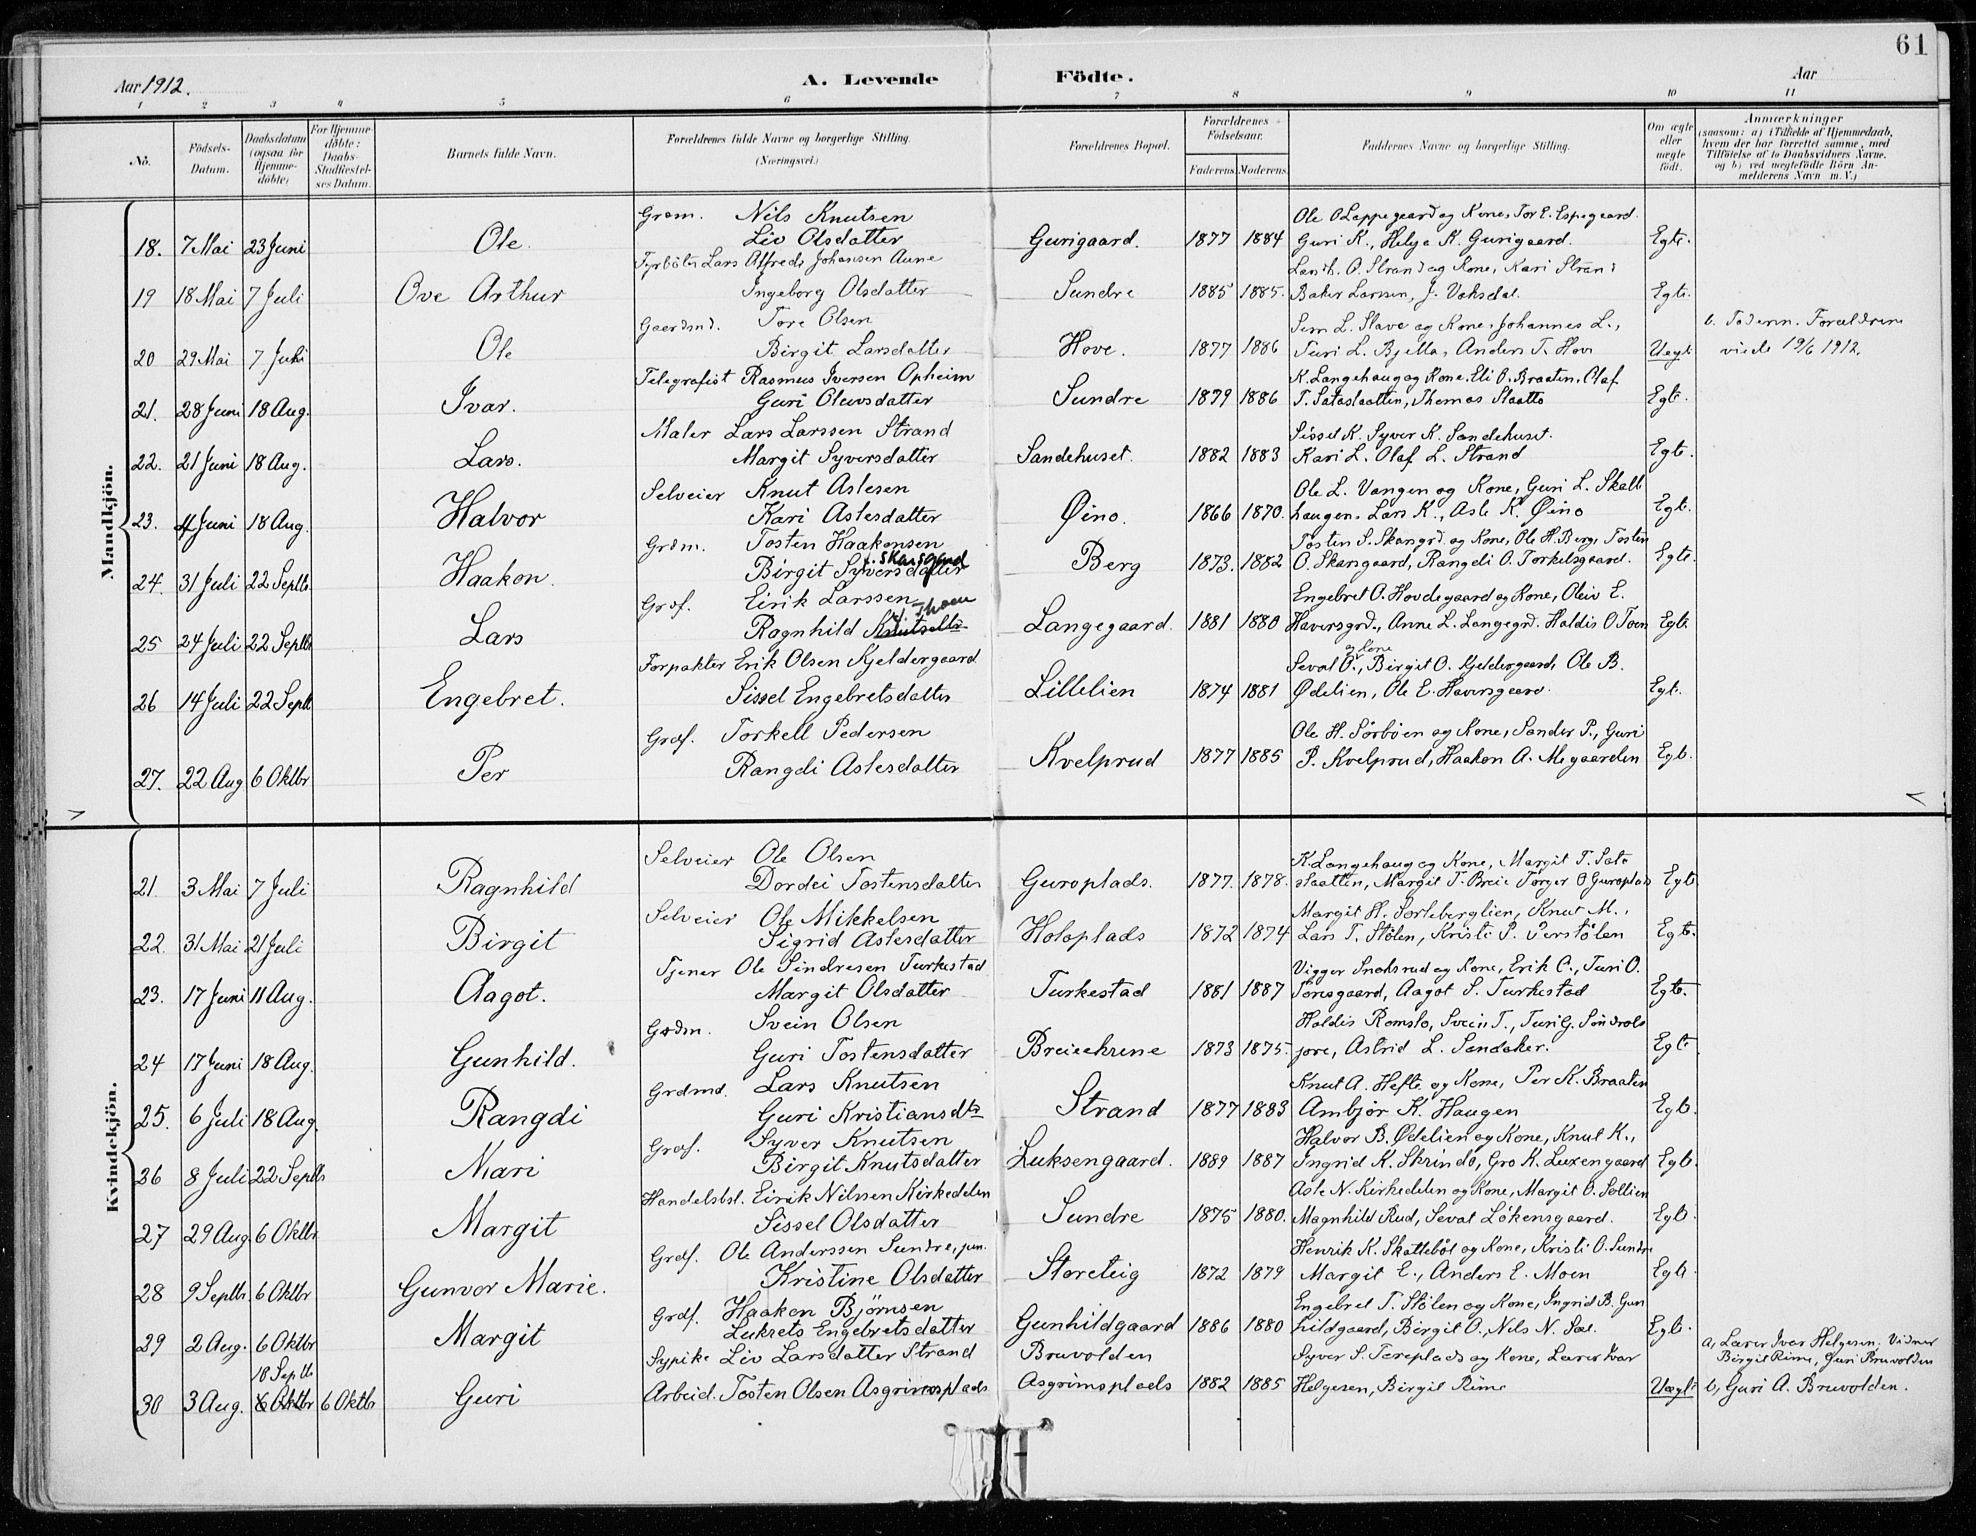 61
Aar 1912.
A. Levende Födte.
Aar
1 2 3 4 5 6 7 8 9 10 11
No.
Födsels-Datum.
Daabsdatum (ogsaa for Hjemme-döbte)
For Hjemme-döbte: Daabs-Stadfæstel-ses Datum.
Barnets fulde Navn.
Forældrenes fulde Navne og borgerlige Stilling. (Næringsvei.)
Forældrenes Bopæl.
Forældrenes Födselsaar.
Faderens. Moderens.
Faddernes Navne og borgerlige Stilling.
Om ægte eller uægte födt.
Anmærkninger
(saasom: a) i Tilfælde af Hjemmedaab, hvem der har forrettet samme, med Tilföielse af to Daabsvidners Navne, og b) ved uægtefödte Börn An-melderens Navn m. V.)
Mandkjön.
Grdm. Nils Knutsen Ole O Lappegaard og Kone, Tor E. Espegaard
18. 7 Mai 23 Juni Ole. Liv Olsdatter Gurigaard. 1877 1884 Guri K., Helge K. Gurigaard. Egte.
Fyrböter Lars Alfred Johansen Aune O. Strand og Kone, Kari Strand
19 18 Mai 7 Juli Ove Arthur Ingeborg Olsdatter Sundre 1885 1885. Baker Larsen, J. Vaksdal. Egte.
Gaardmd. Tore Olsen Sem L. Slave og Kone, Johannes L., b. Faderen. Forældrene
20 29 Mai 7 Juli Ole Birgit Larsdatter Hove. 1877 1886 Turi L. Bjella, Anders T. Hove Uegt. viede 19/6 1912.
Telegrafist Rasmus Iversen Opheim K. Langehaug og Kone. Eli O. Braaten. Olaf
21. 28 Juni 18 Aug. Ivar. Guri Olavsdatter Sundre 1879 1886 T. Sataslaatten, Thomas Slaatto Egte.
Maler Lars Larssen Strand Sissel K. Syver K. Sandehuset.
22. 21 Juni 18 Aug. Lars. Margit Syversdatter Sandehuset. 1882 1883 Kari L. Olaf L. Strand Egt.
Selveier Knut Aslesen Ole L. Vangen og Kone, Guri L. Skall
23. 4 Juni 18 Aug. Halvor Kari Aslesdatter Øino. 1866 1870. haugen. Lars K., Asle K. Øino Egt.
Grdm. Tosten Haakonsen Tosten S. Skangrd. og Kone, Ole H. Berg, Tosten
24. 31 Juli 22 Septb. Haakon. Birgit Syversdatter Berg 1873. 1882 O. Skangaard, Rangdi O. Torkelsgaard. Egte.
Grdf. Eirik Larssen Engebret O. Hovdegaard og Kone, Oleiv E.
25 24 Juli 22 Septbr Lars Ragnhild Thoen Langegaard. 1881 1880 Haversgrd., Anne L. Langegrd. Haldis O Toen Egt.
Forpakter Erik Olsen Kjeldergaard Seval O. og Kone, Birgit O. Kjeldergaard, Ole B.
26 14 Juli 22 Septb Engebret. Sissel Engebretsdatter Lillelien 1874 1881 Ødelien, Ole E. Haversgaard. Egt.
Grdf. Torkell Pedersen Ole H. Sörböen og Kone, Sander P., Guri
27. 22 Aug 6 Oktbr Per Rangdi Aslesdatter Kvelprud 1877 1885 P. Kvelprud, Haakon A. Megaarden Egt.
Kvindekjön.
Selveier Ole Olsen K. Langehaug og Kone, Margit T. Sata
21. 3 Mai 7 Juli Ragnhild Dordei Tostensdatter Guroplads. 1877. 1878. slaatten, Margit T. Breie Torger O Guroplads Egt
Selveier Ole Mikkelsen Margit H. Sorteberglien, Knut M.,
22 31 Mai 21 Juli Birgit Sigrid Aslesdatter Holoplads 1872 1874 Lars T. Stölen, Kristi P. Perstölen Egt.
Tjener Ole Sindresen Turkestad Vigger Snohsrud og Kone, Erik O., Turi O.
23. 17 Juni 11 Aug. Aagot. Margit Olsdatter Turkestad 1881 1887 Toresgaard, Aagot S. Turkestad Egt.
Grdm. Svein Olsen Haldis Romslo, Svein T., Turi G. Söndrols
24 17 Juni 18 Aug. Gunhild. Guri Tostensdatter Breiechrene 1873 1875. jore, Astrid L. Sandaker. Egt
Grdmd. Lars Knutsen Knut A. Hefte og Kone, Per K. Braaten
25. 6 Juli 18 Aug. Rangdi Guri Kristiansdtr Strand 1877 1883 Ambjör K. Haugen Egt.
Grdf. Syver Knutsen Halvor B. Ødelien og Kone, Knut K.,
26 8 Juli 22 Septb Mari Birgit Knutsdatter Luksengaard. 1889 1887 Ingrid K. Skrindo, Gro K. Luxengaard Egt.
Handelsbst. Eirik Nilssen Kirkedelen Asle N. Kirkedelen og Kone, Margit O. Sollien
27 29 Aug 6 Oktbr. Margit Sissel Olsdatter Sundre 1875 1880. Magnhild Rud, Seval Lökensgaard. Egt.
Grdf. Ole Anderssen Sundre, jun. Henrik K. Skatteböl og Kone, Kristi O. Sundre
28 9 Septb. 6 Oktbr Gunvor Marie. Kristine Olsdatter Storeteig 1872 1879 Margit E., Anders E. Moen Egt.
Grdf. Haakon Björnsen Engebret T. Stölen og Kone, Ingrid B. Gun
29 2 Aug. 6 Oktbr Margit Lukrets Engebretsdatter Gunhildgaard 1886 1880 hildgaard, Birgit O., Nils N. Sæ. Egt.
18 Septb Sypike Liv Larsdatter Strand Bruvolden Syver S. Tereplads og Kone, Lærer Ivar a, Lærer Ivar Helgesen, Vidner Birgit Rime, Guri Bruvolden
30 3 Aug. 6 Oktbr 6 Oktbr Guri Arbeid. Tosten Olsen Asgrimsplads Asgrimsplads 1882 1885 Helgesen, Birgit Rime Uægt. b, Guri A. Bruvolden.